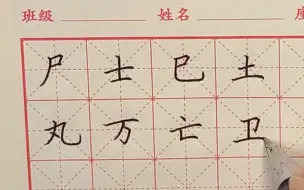 班级 姓名
尸士巳土
丸万亡卫